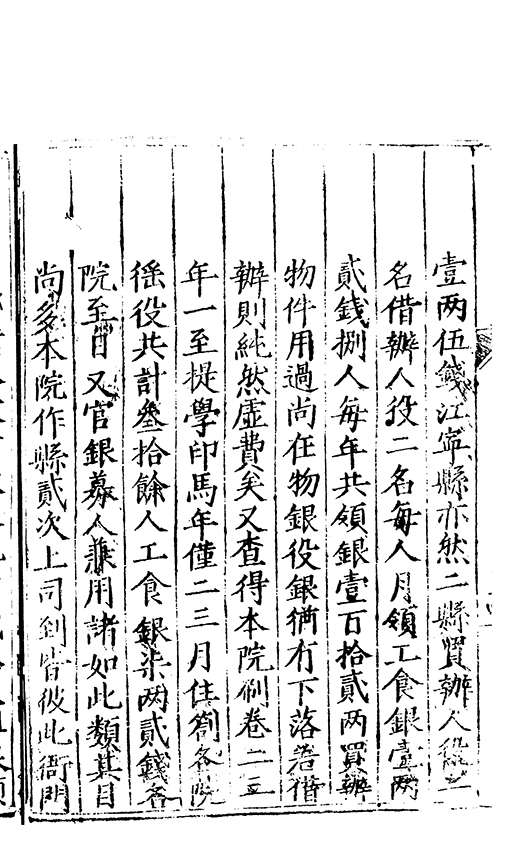 壹两伍錢江寧縣亦然二縣買辦人役二
名借辦人役二名每人月領工食銀壹两
貳錢捌人每年共領銀壹百拾貳两買辦
物件用過尚在物銀役銀猶有下落若借
辦則純然虚費矣又查得本院刷卷二三
年一至提學印馬年僅二三月住劄各院
徭役共計叄拾餘人工食銀柒两貳錢各
院至日又官銀募人兼用諸如此類其目
尚多本院作縣貳次上司到皆彼此衙門